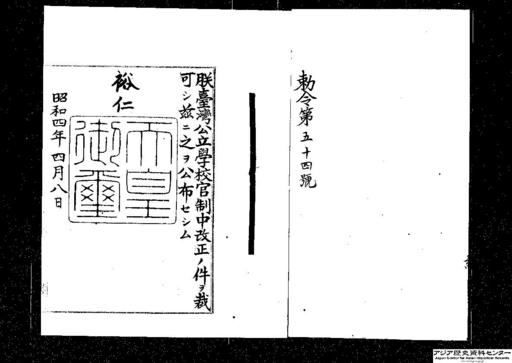 勅令第五十四號
朕臺灣公立學校官制中改正ノ件ヲ裁
可シ玆ニ之ヲ公布セシム
裕仁
天皇
御璽
昭和四年四月八日
アジア歴史資料センター
Japan Center for Asian Historical Records